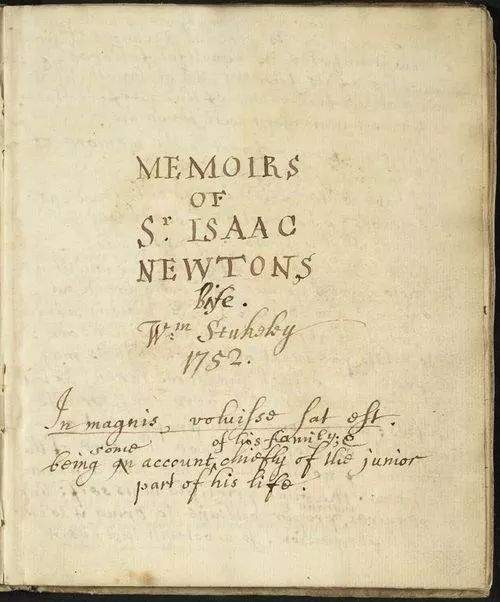 MEMOIRS
OF
Sr. ISAAC
NEWTONS
life.
Wm. Stukeley
1752.
In magnis, voluisse sat est.
some of his family; &
being an account, chiefly of the junior
part of his life.